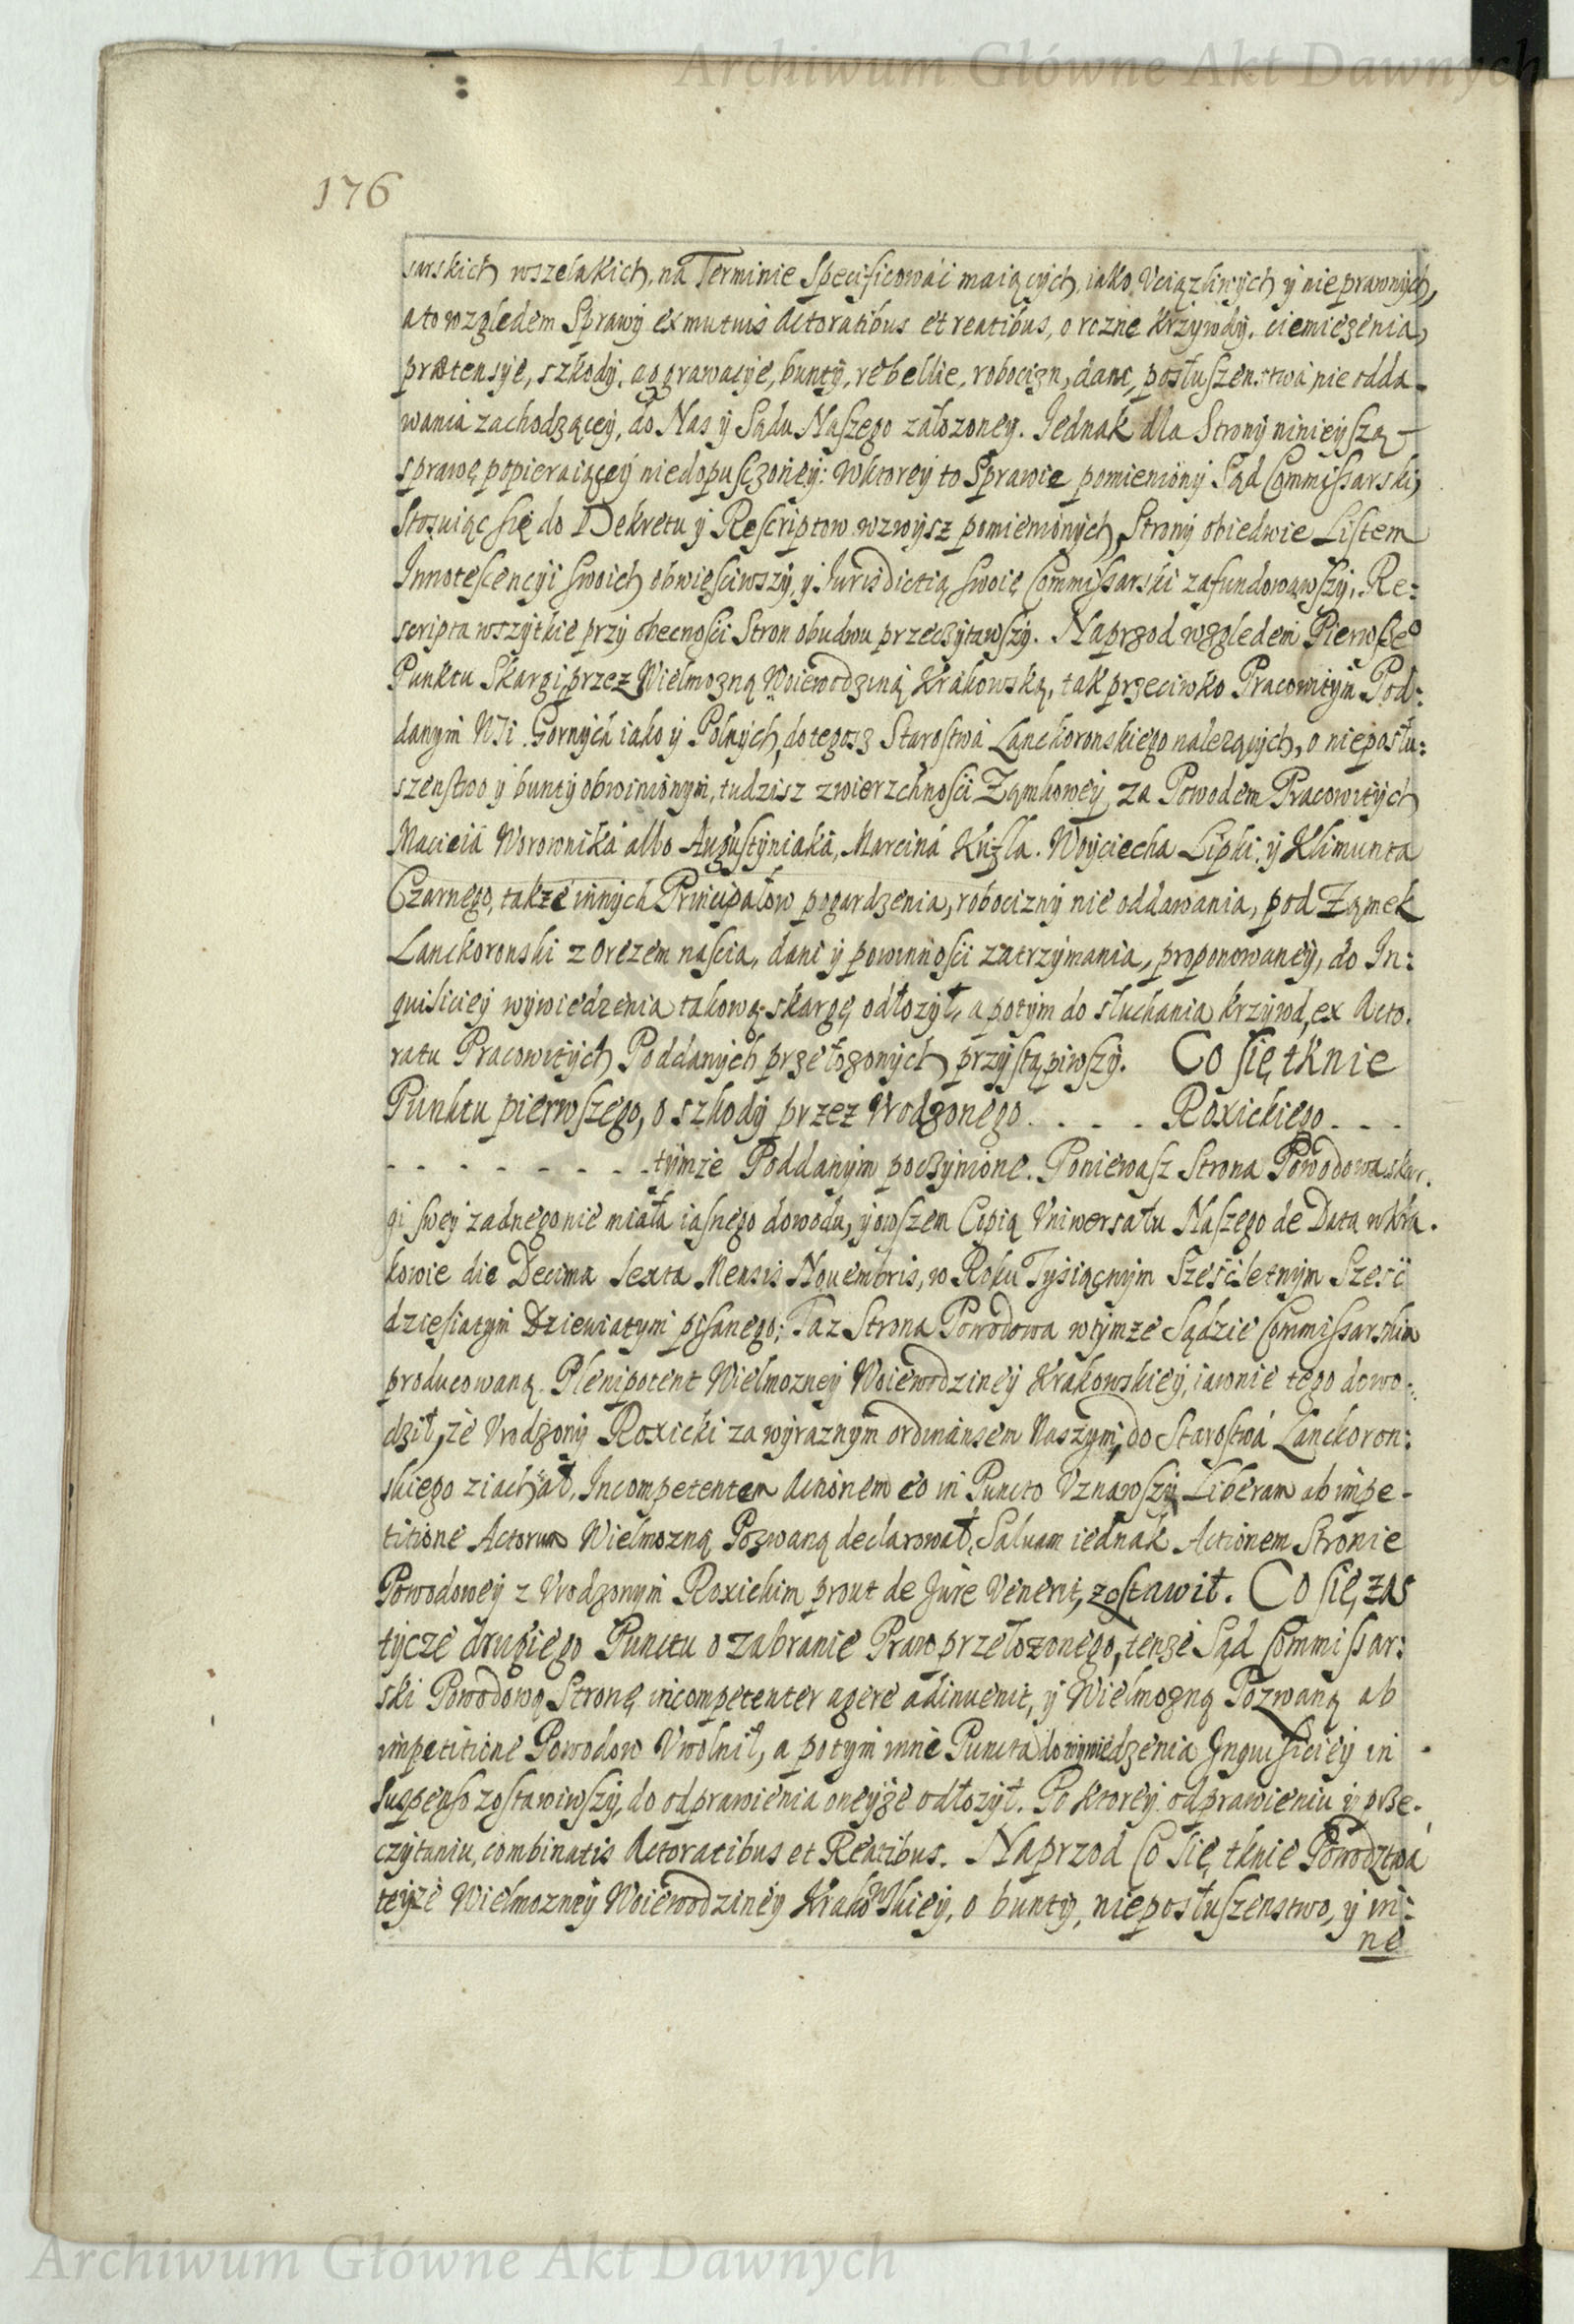 Archiwum Główne Akt Dawnych
176
sarskich wszelakich, na Terminie Specificować maiących, iako Vciązliwych ÿ nieprawnÿch,
a to względem Sprawÿ ex mutuis Actoratibus et reatibus, o rozne Krzÿwdÿ, ciemięzenia,
prætensÿe, szkodÿ, aggrawacÿe, buntÿ, rebellie, robocizn, dani, posłuszenstwa nie odda-
wania zachodzącey, do Nas ÿ Sądu Naszego załozoneÿ. Jednak dla Stronÿ ninieÿszą
sprawę popieraiąceÿ niedopusczoneÿ: Wktoreÿ to Sprawie pomienionÿ Sąd Commissarski,
Stosuiąc się do Dekretu ÿ Rescriptow wzwÿsz pomienionÿch, Stronÿ obiedwie Listem
Innotescencÿi swoich obwięsciwszÿ, ÿ Jurisdictią swoię Commissarski zafundowawszÿ, Re:
scripta wszÿtkie przÿ obecnosci Stron obudwu przeczÿtawszÿ. Naprzod względem Pierwsze⁰
Punktu Skargi przez Wielmozną Woiewodziną Krakowską, tak przeciwko Pracowitÿm Pod:
danÿm WSi Gornÿch iako ÿ Polnÿch, do tegosz Starostwa Lanckoronskiego nalezącÿch, o nieposłu:
szenstwo ÿ buntÿ obwinionÿm, tudzisz zwierzchnosci Zamkoweÿ, za Powodem Pracowitÿch
Macieia Worownika albo Augustÿniaka, Marcina Kuzla. Woÿciecha Lipki, ÿ Klimunta
Czarnego, takze innÿch Principałow pogardzenia, robociznÿ nie oddawania, pod Zamek
Lanckoronski z Orezem nascia, dani ÿ powinnosci zatrzÿmania, proponowaneÿ, do In:
quisicieÿ wÿwiedzenia takową skargę odłozÿł, a potÿm do słuchania krzÿwd, ex Acto.
ratu Pracowitÿch Poddanÿch przełozonÿch przÿstąpiwszÿ. Co się tknie
Punktu pierwszego, o szkodÿ przez Vrodzonego . . . . Roxickiego - - -
- - - - - - - - tÿmze Poddanÿm poczÿnione. Poniewasz Strona Powodowa skar.
gi sweÿ zadnego nie miała iasnego dowodu, ÿ owszem Copią Vniwersału Naszego de Data w Kra.
kowie die Decima Sexta Mensis Nouembris, w Roku Tÿsiącnÿm Szescsetnÿm Szesc
dziesiatÿm Dziewiatÿm pisanego; Taz Strona Powodowa w tÿmze Sądzie Commissarskim
producowaną. Plenipotent Wielmozneÿ Woiewodzineÿ Krakowskieÿ, iawnie tego dowo-
dził, ze Vrodzonÿ Roxicki za wÿraznÿm ordinansem Naszÿm, do Starostwa Lanckoron:
skiego ziachał, Incompetentem Actionem eo in Puncto Vznawszÿ Liberam ab impe-
titione Actorum Wielmozną Pozwaną declarował, Saluam iednak Actionem Stronie
Powodoweÿ z Vrodzonÿm Roxickim prout de Jure Venerit, zostawił. Co się zas
tÿcze drugiego Punctu o zabranie Praw przełozonego, tenze Sąd Commissar:
ski Powodową Stronę incompetenter agere adinuenit, ÿ Wielmozną Pozwaną ab
impetitione Powodow Vwolnił, a potÿm inne Puncta do wÿwiedzenia Inquisicieÿ in
suspenso zostawiwszÿ, do odprawienia oneÿze odłozÿł. Po ktoreÿ odprawieniu ÿ prze-
czÿtaniu, combinatis Actoratibus et Reatibus. Naprzod Co się tknie Powodztwa
teÿze Wielmozneÿ Woiewodzineÿ Krakowskieÿ, o buntÿ, nieposłuszenstwo, ÿ in:
ne
Archiwum Główne Akt Dawnych